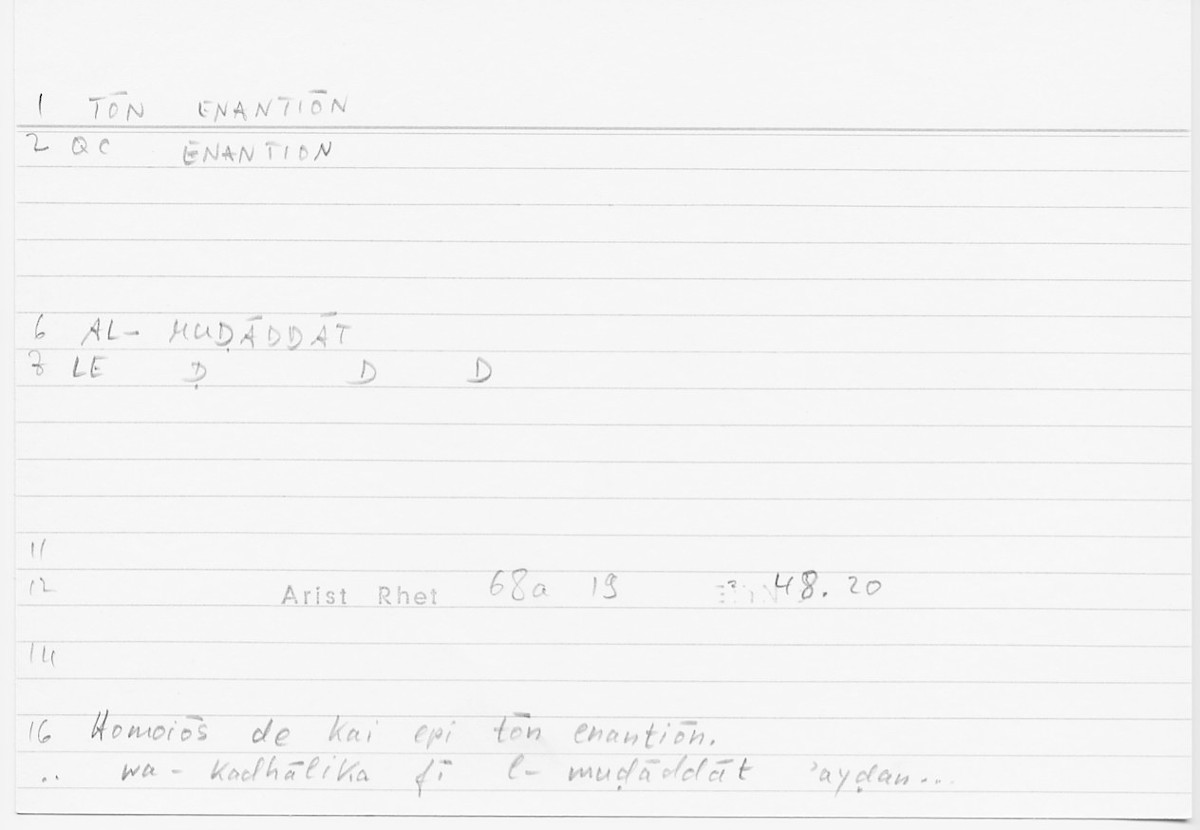 1 TŌN ENANTIŌN
2 QC ENANTION
6 AL- MUḌĀDDĀT
7 LE Ḍ D D
11
12 Arist Rhet 68a 19 48.20
14
16 Homoiōs de kai epi tōn enantiōn.
.. wa- kadhālika fī l- muḍāddāt ʾayḍan...